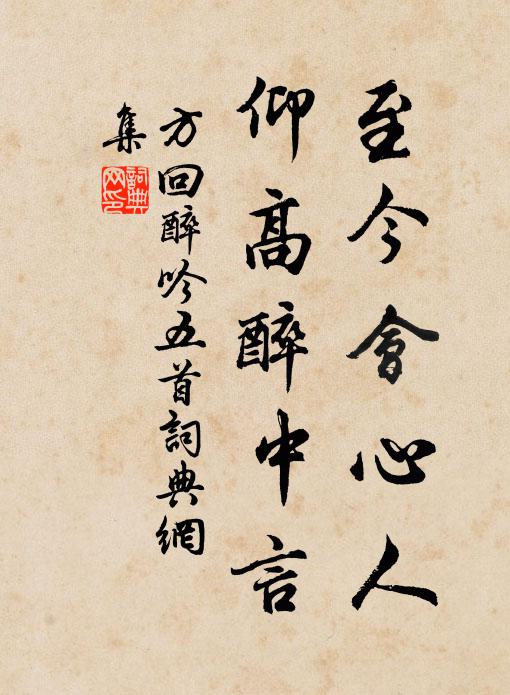 至今會心人
仰高醉中言
方回醉吟五首詞典網
集
詞典
网印